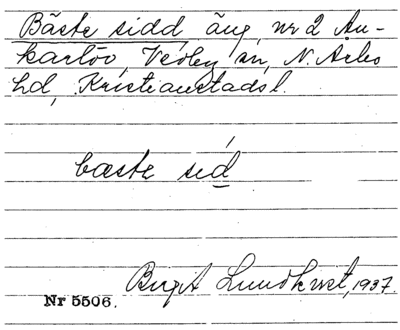 Bäste sidd, äng, nr 2 An-
karlöv, Vedby sn, N. Åsbo
hd, Kristianstads l.
bæste sid
Birgit Lundkvist, 1937.
Nr 5506.